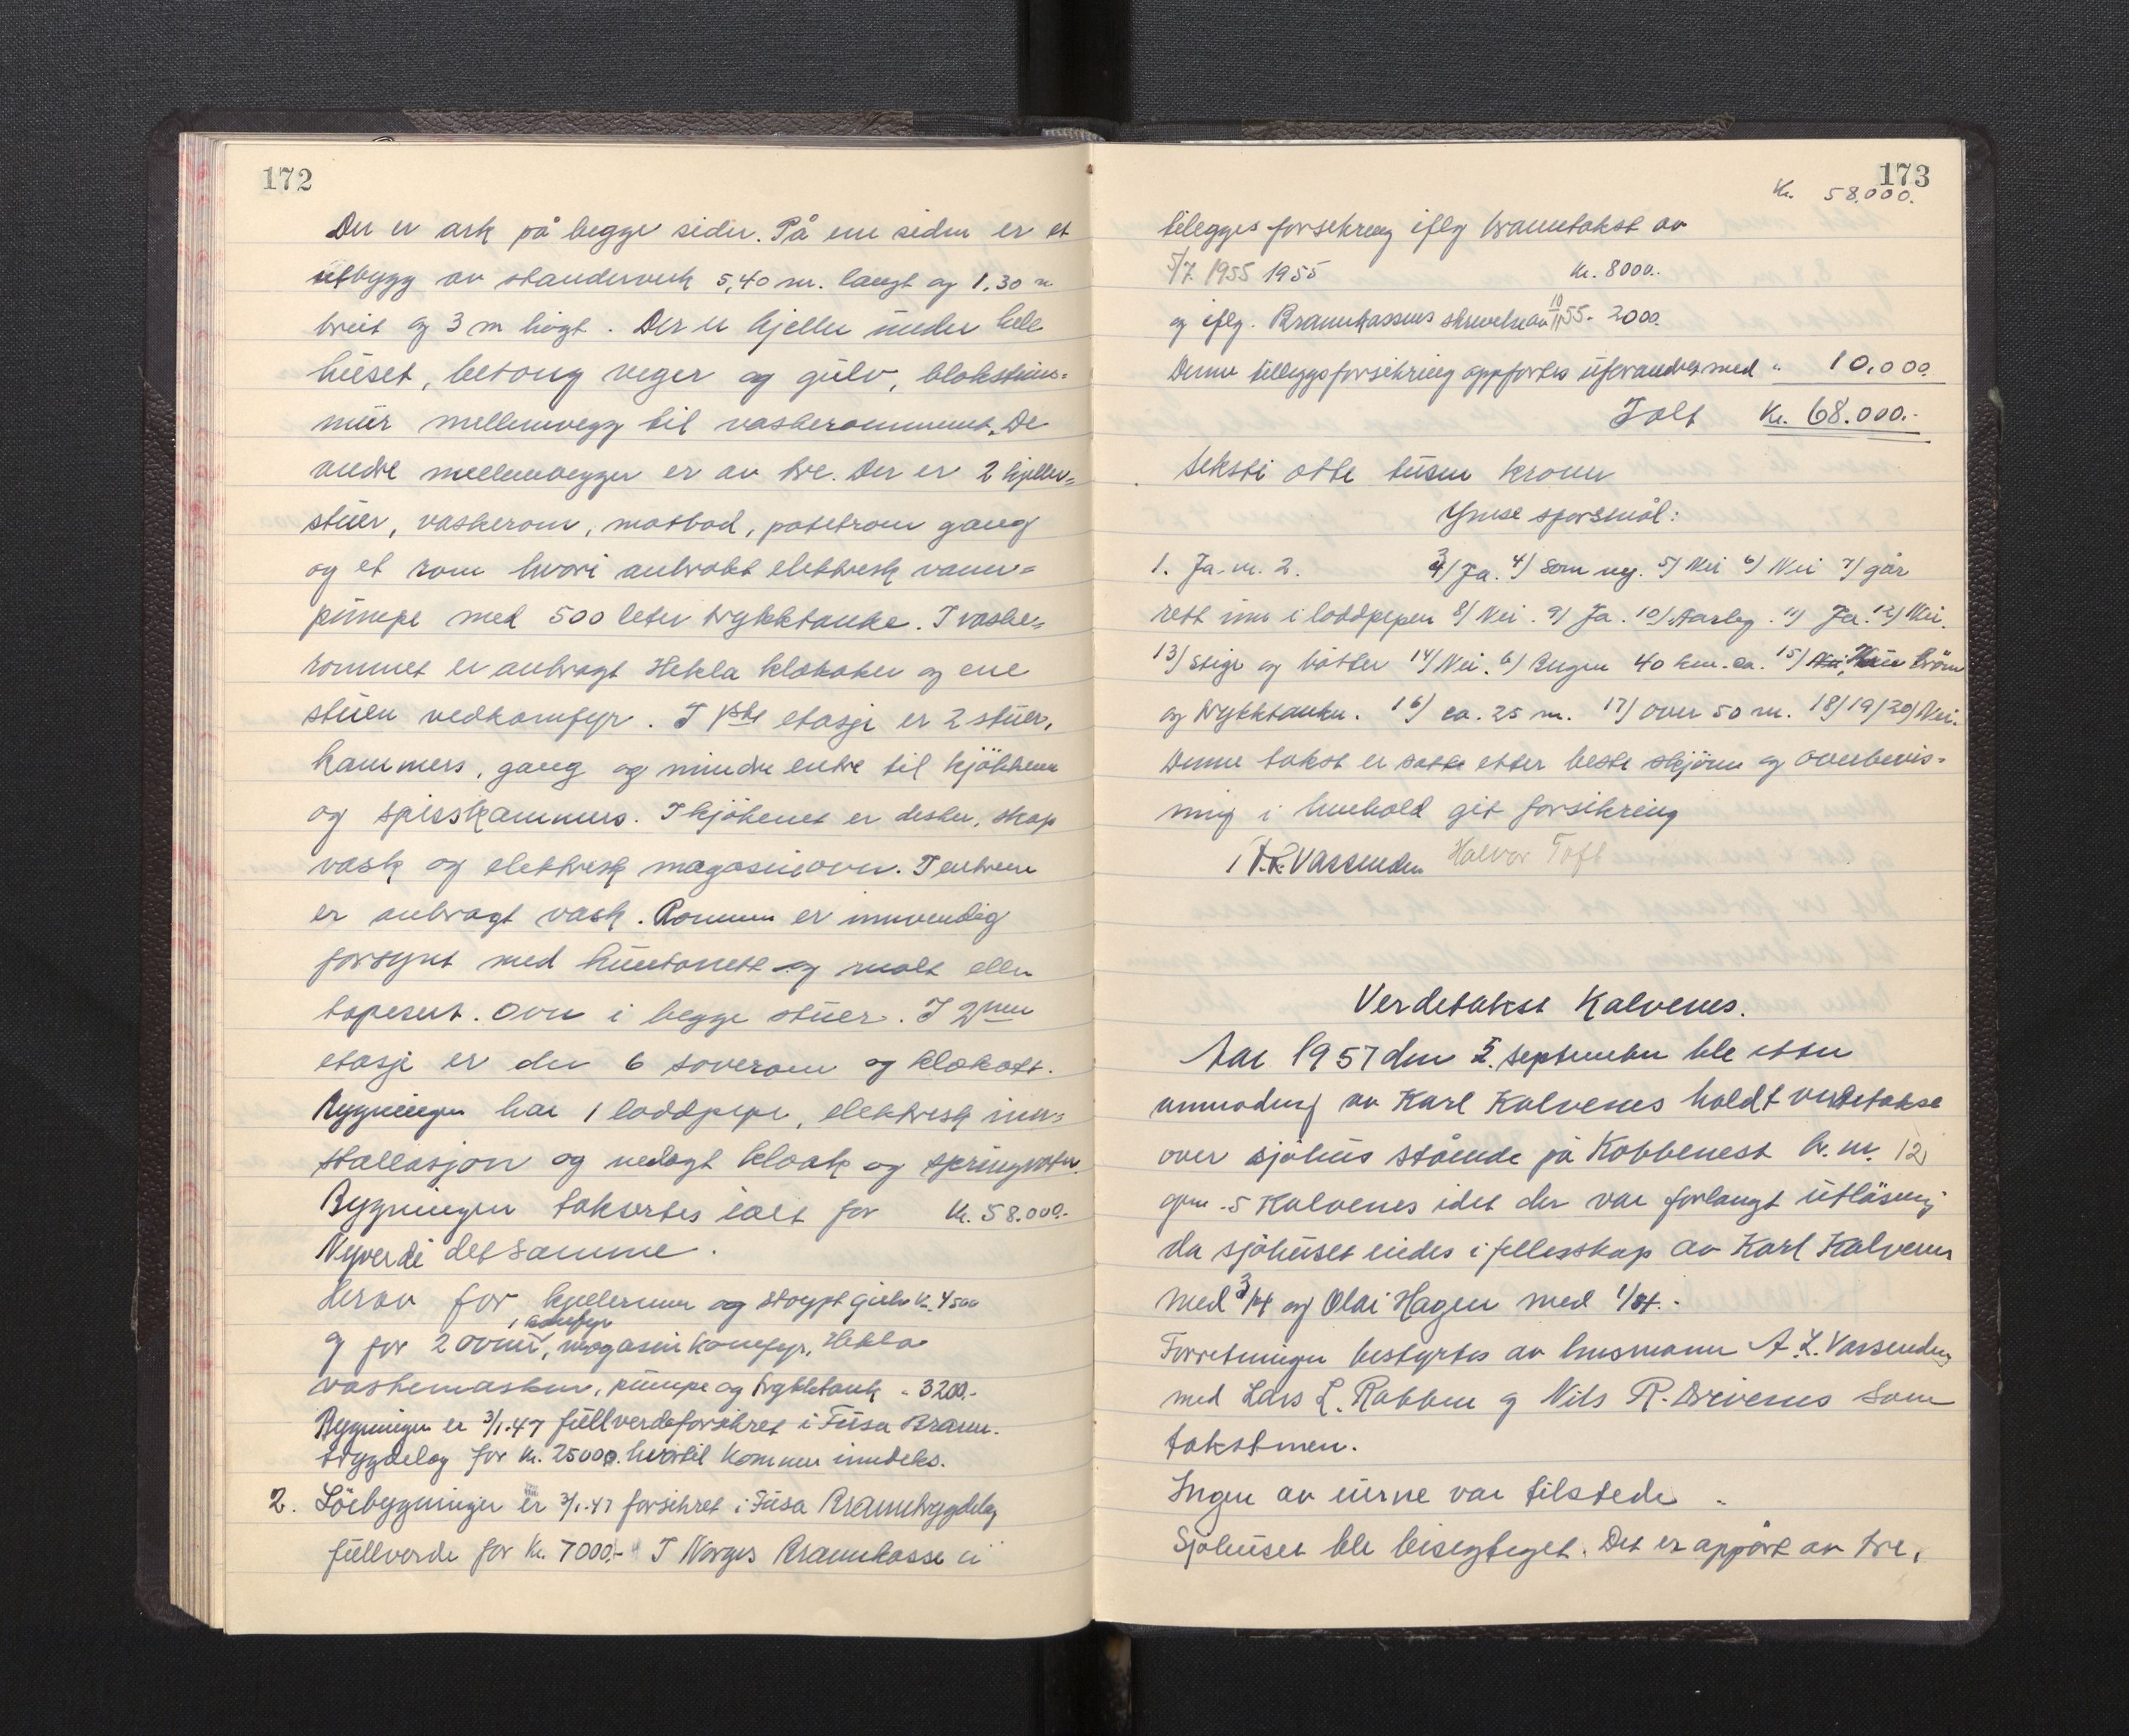 172
Der er ark på begge sider. På ene siden er et
utbygg av standerverk 5,40 m. langt og 1.30 m
breit og 3 m högt. Der er kjeller under hele
huset, betong veger og gulv, blokstens=
mur mellemvegg til vaskerommmet. De
andre mellemvegger er av tre. Der er 2 kjeller=
stuer, vaskerom, matbod, potetrom gang
og et rom hvori anbrakt elektrisk vann=
pumpe med 500 liter trykktanke. I vaske=
rommet er anbragt Hekla klokoker og ene
stuen vedkomfyr. I 1ste etasje er 2 stuer,
kammers, gang og mindre entre til kjökken
og spisskammers. I kjökenet er desker, skap
vask og elektrisk magasinovn. I entreen
er anbragt vask. Rommen er innvendig
forsynt med huntonett og malt eller
tapesert. Ovn i begge stuer. I 2nen
etasje er der 6 soverom og klokott.
Bygningen har 1 loddpipe, elektrisk inn=
stallasjon og nedlagt kloak og springvatn.
Bygningen takertes ialt for Kr. 58.000.-
Nyverdi det samme.
Herav for kjellermur og stöypt gulv Kr. 4500
og for 2 ovner, komfyr, magasin komfyr, Hekla
vaskemaskin, pumpe og trykktank " 3200.-
Bygningen er 3/1.47 fullverdeforsikret i Fusa Brann-
trygdelag for Kr. 25000. hertil kommer inndeks.
2. Löebygningen er 3/1.47 forsikret i Fusa Branntrygdelag
fullverde for Kr. 7000.- I Norges Brannkasse er
173
Kr. 58.000.
tileggs forsikring iflg branntakst av
5/7. 1955 1955 Kr. 8000.-
og iflg. Brannkassens skrivelse av 10/11 55 - 2000.
Denne tilleggsforsikring oppförtes uforandret med " 10.000.
Ialt Kr. 68.000.-
seksti otte tusen kroner
Ymse sporsmål:
1. Ja. nr. 2. 3/ Ja. 4/ Som ny. 5/ Nei 6/ Nei 7/ går
rett inn i loddpipen 8/ Nei. 9/ Ja. 10/ Aarleg. 11/ Ja. 12/ Nei.
13/ Stige og bötter 14/ Nei. 6/ Bergen 40 km. ca. 15/ brönn
og trykktanke. 16/ ca. 25 m. 17/ over 50 m. 18/19/20/ Nei.
Denne takst er satt etter beste skjönn og overbevis=
ning i henhold git forsikring
Vassenden Halvor Toft
Verdetakst Kalvenes.
Aar 1957 den 5. september ble etter
anmoding av Karl Kalvenes holdt verdetakst
over sjöhus stående på Kobbenest br. nr. 12
gnr. 5 Kalvenes idet der var forlangt utläsning
da sjöhuset eides i fellesskap av Karl Kalvenes
med 3/4 og Olai Hagen med 1/4.-
Forretningen bestyrtes av lensmann A. L. Vassenden
med Lars L. Robben og Nils R. Drivenes som
takstmen.
Ingen av eierne var tilstede.
Sjöhuset ble beisegtiget. Det er oppört av tre,